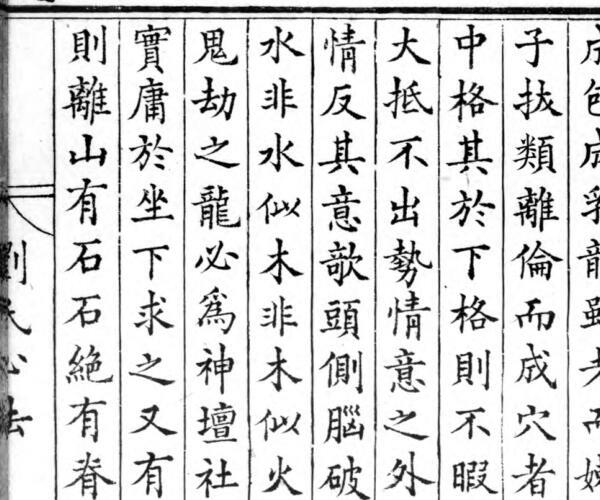 成包成乳龍雖老而嫩
子拔類離倫而成穴者
中格其於下格則不暇
大抵不出勢情意之外
情反其意欹頭側腦破
水非水似木非木似火
鬼劫之龍必為神壇社
實庸於坐下求之又有
則離山有石石絕有脊
劉氏心法